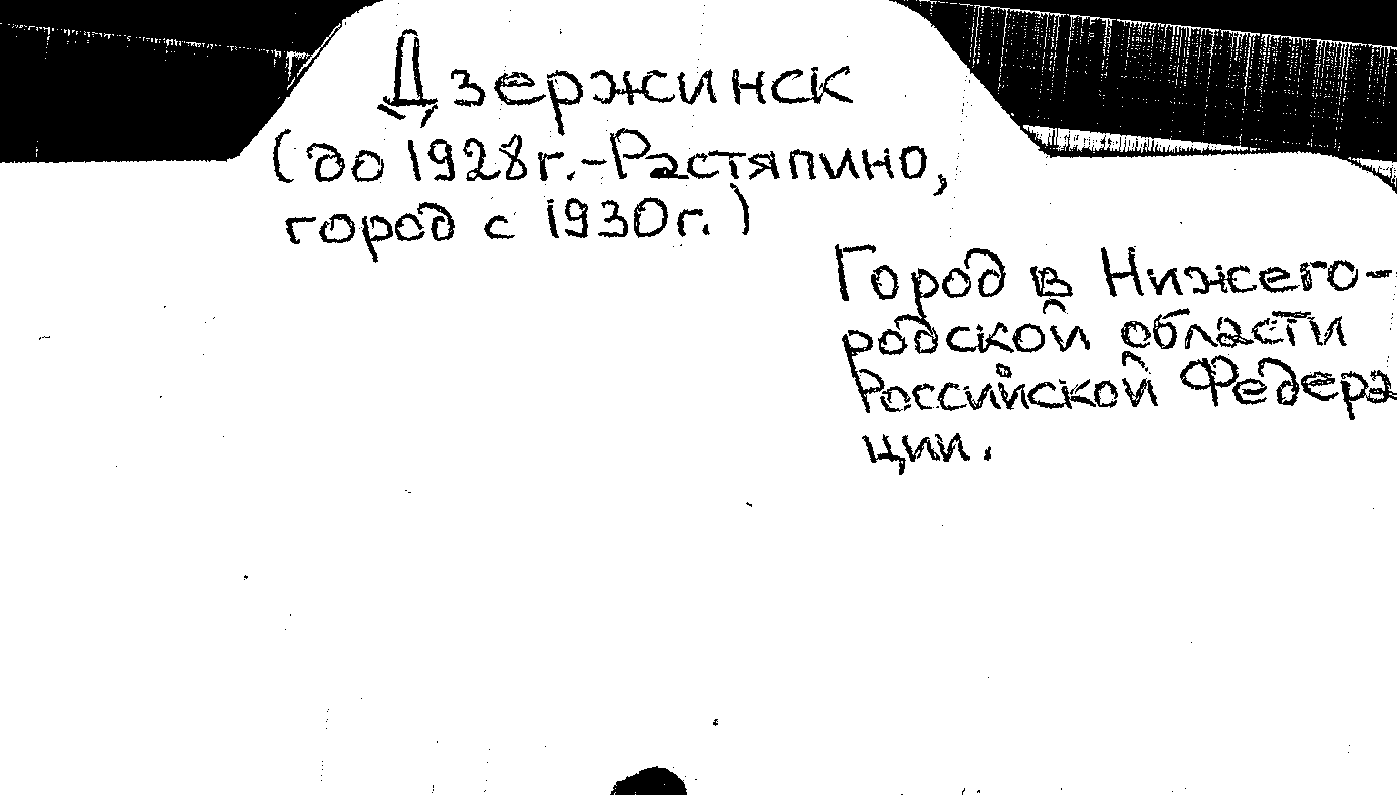 Дзержинск
(до 1928г.-Растяпино,
город с 1930г.)
Город в Нижего-
родской области
Российской Федера
ции.